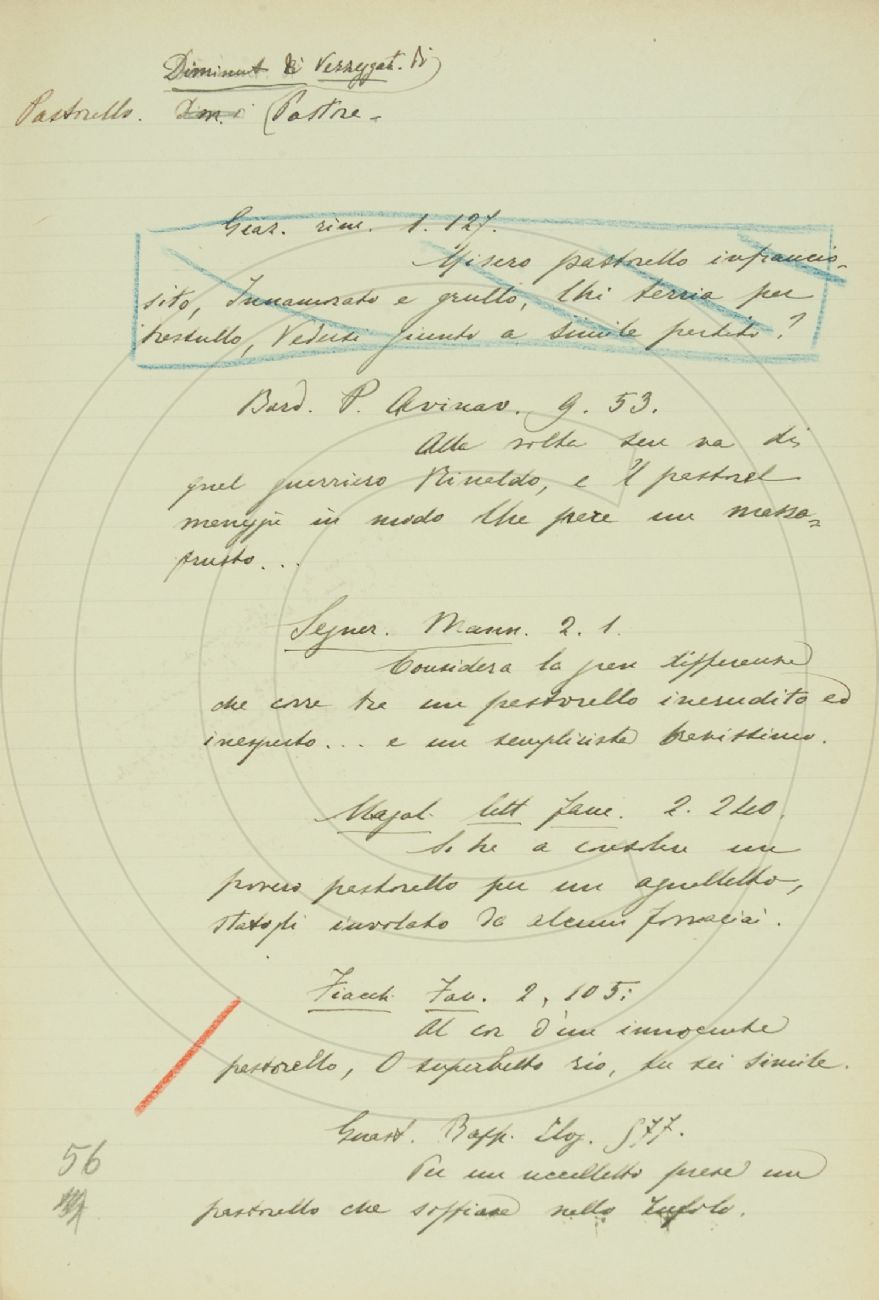 Diminut e Vezzeggat. di
Pastorello. Dim. (Pastore.
rim. 1. 127.
Misero pastorello infrancio-
sito, Innamorato e grullo, Chi terria per
trastullo, Vedersi giunto a simile partito?
Bard. P. Avinav. 9. 53.
Alla volta sen va di
quel guerriero Rinaldo, e 'l pastorel
in modo Che pare un mazza-
frusto...
Segner. Mann. 2. 1.
Considera la gran differenza
che corre tra un pastorello inerudito ed
inesperto... e un semplicista bravissimo.
Magal. lett fam. 2. 240.
a consolar un
povero pastorello per un agnelletto,
statogli involato da alcuni fornaciai.
Fiacch. Fav. 2, 105:
Al cor d'un innocente
pastorello, O superbetto rio, tu sei simile.
Guast. Rapp. Elog. 577.
Per un uccelletto prese un
pastorello che soffiasse nello zufolo.
56